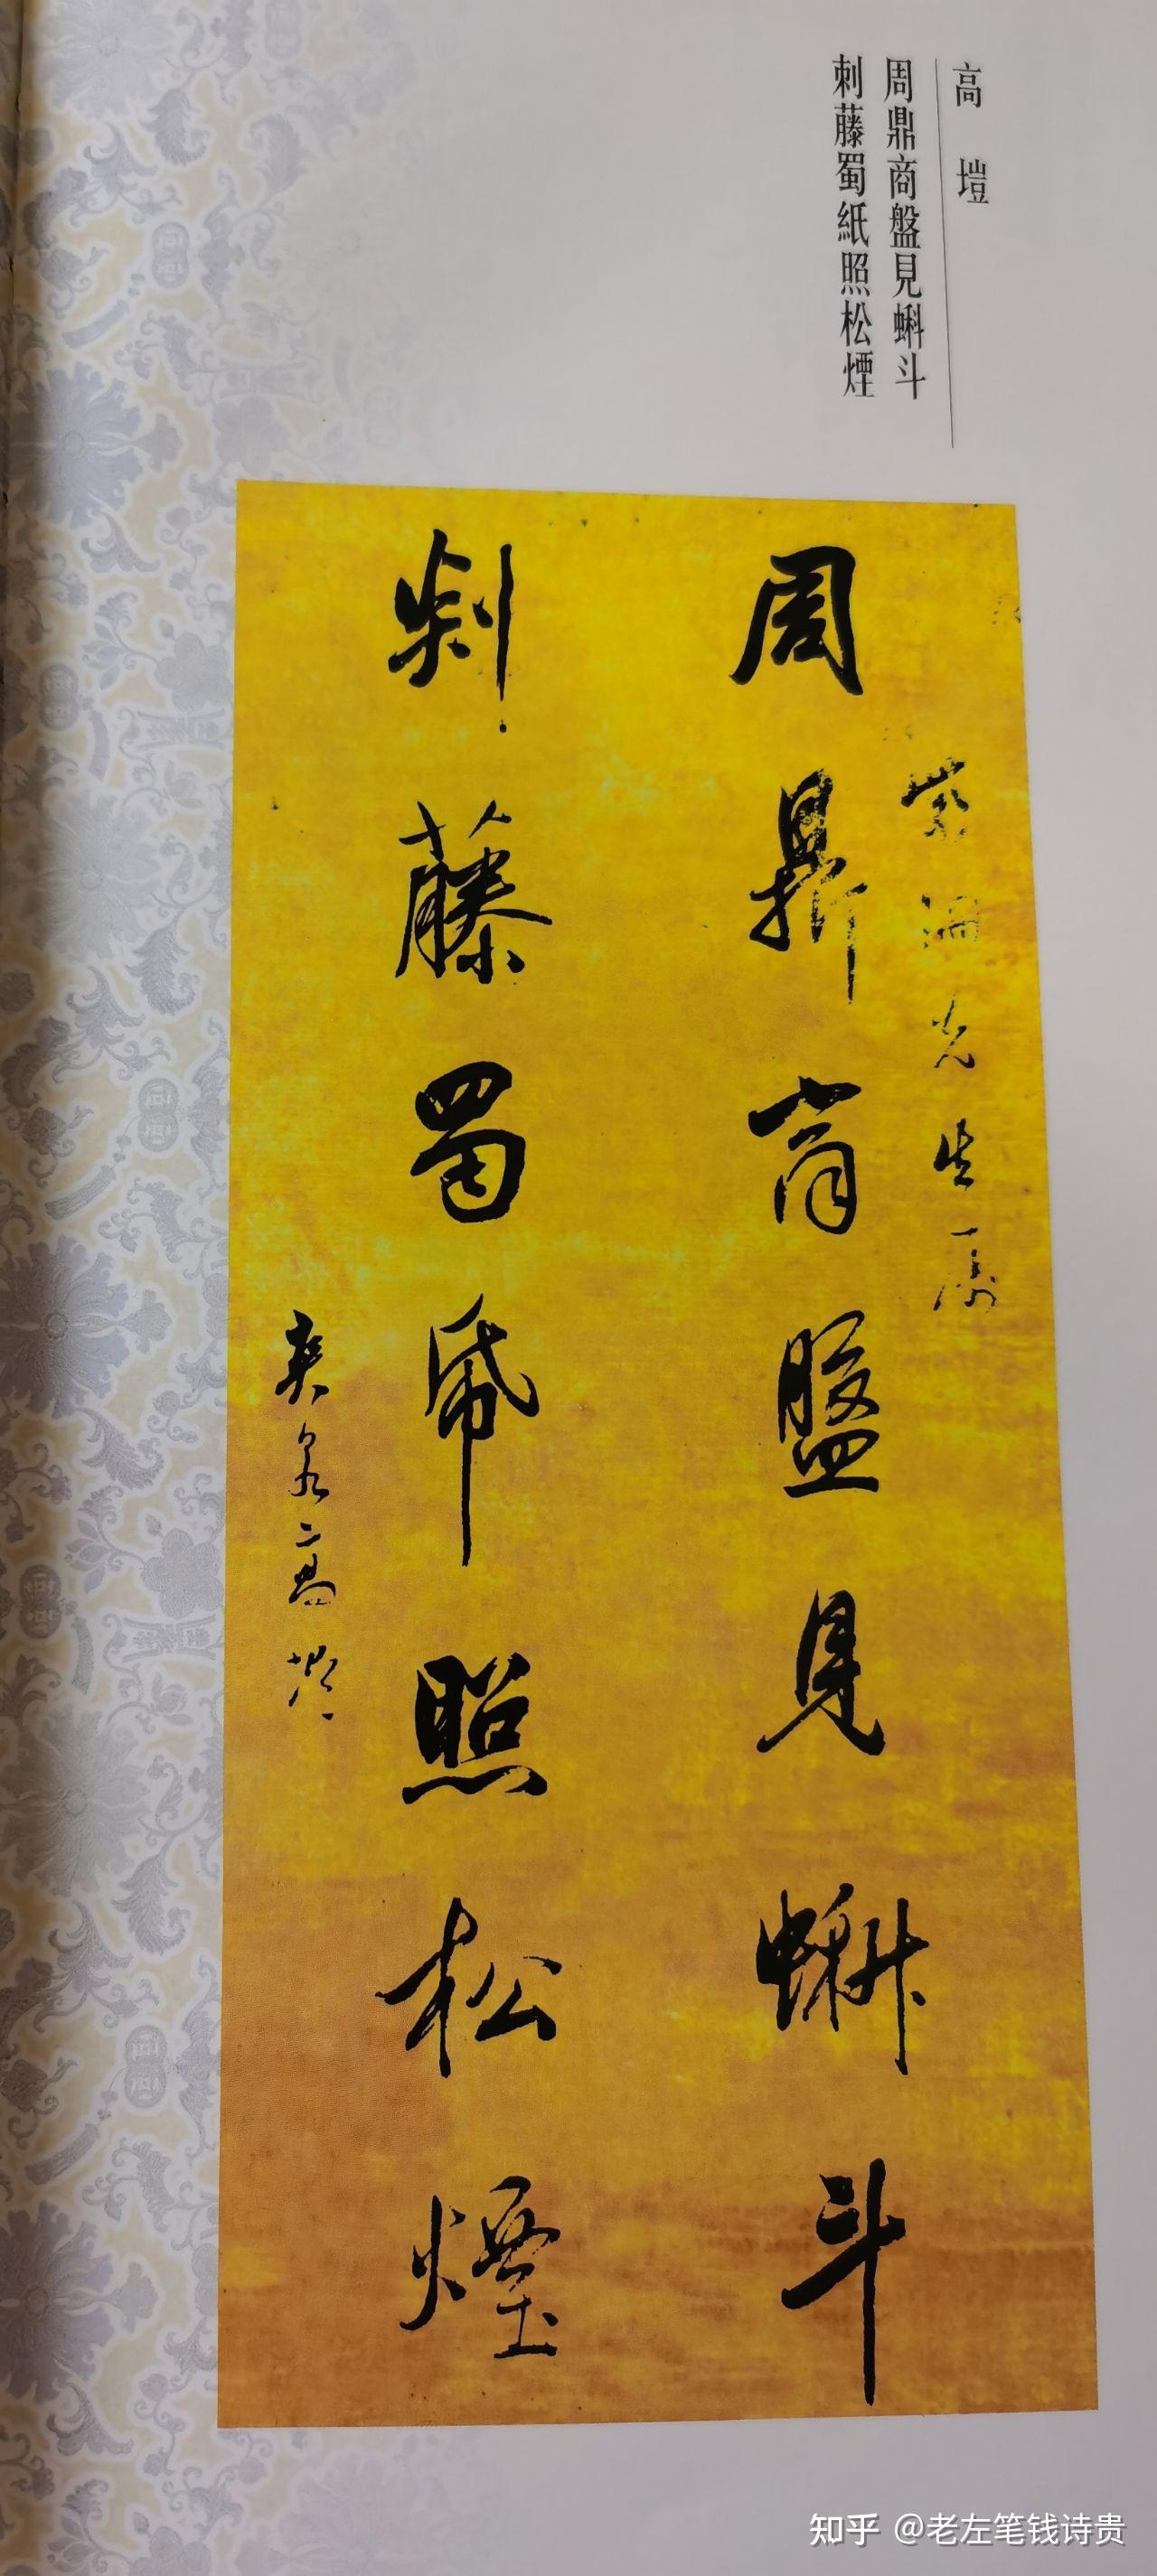 高塏
周鼎商盤見蝌斗
刺藤蜀紙照松煙
先生一屬
周鼎商盤見蝌斗
剡藤蜀帋照松煙
爽泉高塏
知乎 @老左笔钱诗贵